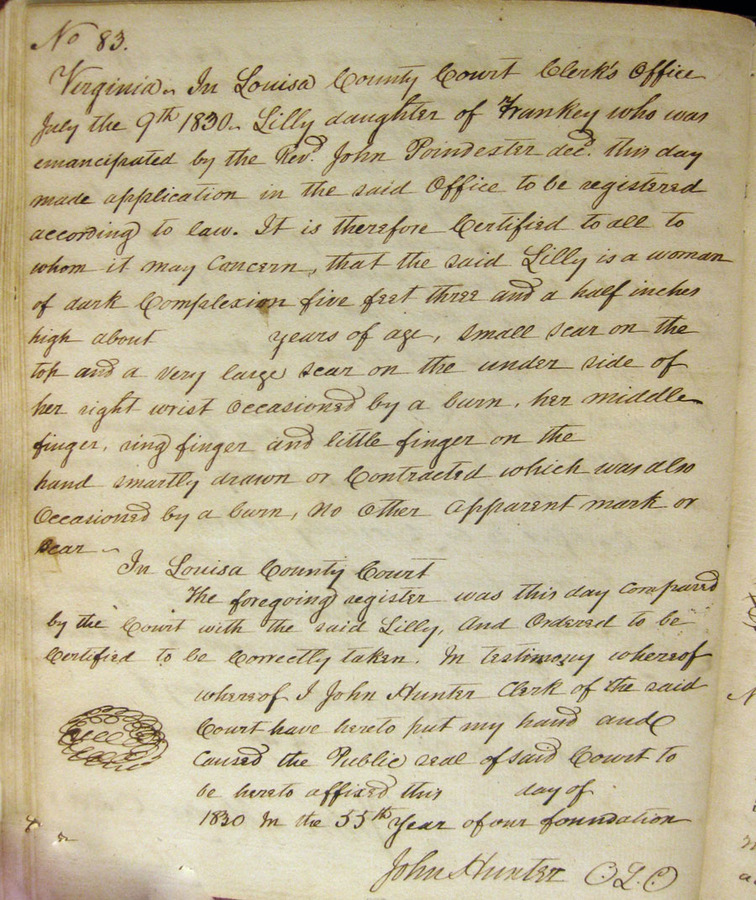 No 83.
Virginia. In Louisa County Court Clerk's Office
July the 9th 1830. Lilly daughter of Frankey who was
emancipated by the Revd. John Poindexter decd. this day
made application in the said Office to be registered
according to law. It is therefore Certified to all to
whom it may Concern, that the said Lilly is a woman
of dark Complexion five feet three and a half inches
high about years of age, small scar on the
top and a very large scar on the under side of
her right wrist Occasioned by a burn, her middle
finger, ring finger and little finger on the
hand smartly drawn or Contracted which was also
Occasioned by a burn, no other apparent mark or
scar
In Louisa County Court
The foregoing register was this day Compared
by the Court with the said Lilly, And Ordered to be
Certified to be Correctly taken. In testimony whereof
whereof I John Hunter Clerk of the said
Court have hereto put my hand and
Caused the Public seal of said Court to
be hereto affixed this day of
1830 In the 55th Year of our foundation
John Hunter C.L.C